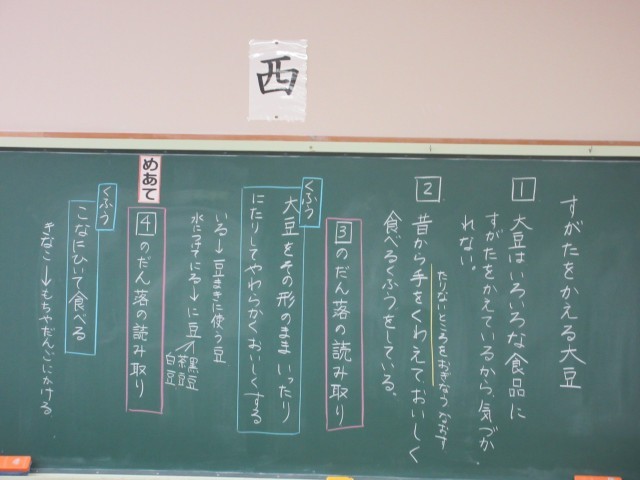 西
すがたをかえる大豆
1
大豆はいろいろな食品に
すがたをかえているから、気づか
れない。
2
たりないところをおぎなう なおす
昔から手をくわえて、おいしく
食べるくふうをしている。
3のだん落の読み取り
くふう
大豆をその形のまま いったり
にたりしてやわらかくおいしくする
いる→豆まきに使う豆
水につけてにる→に豆
黒豆
茶豆
白豆
めあて
4のだん落の読み取り
くふう
こなにひいて食べる
きなこ→もちやだんごにかける